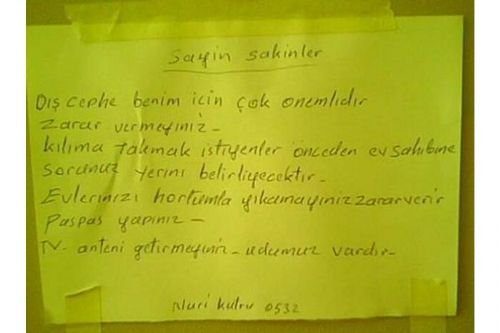 Sayin sakinler
Dış cephe benim için çok önemlidir
Zarar vermeyiniz_
kılıma takmak istiyenler önceden ev sahibine
sorunuz yerini belirliyecektir_
Evlerinizi hortumla yıkamayınız zarar verir
Paspas yapınız _
TV. anteni getirmeyiniz_ udumuz vardır_
Nuri kulru 0532